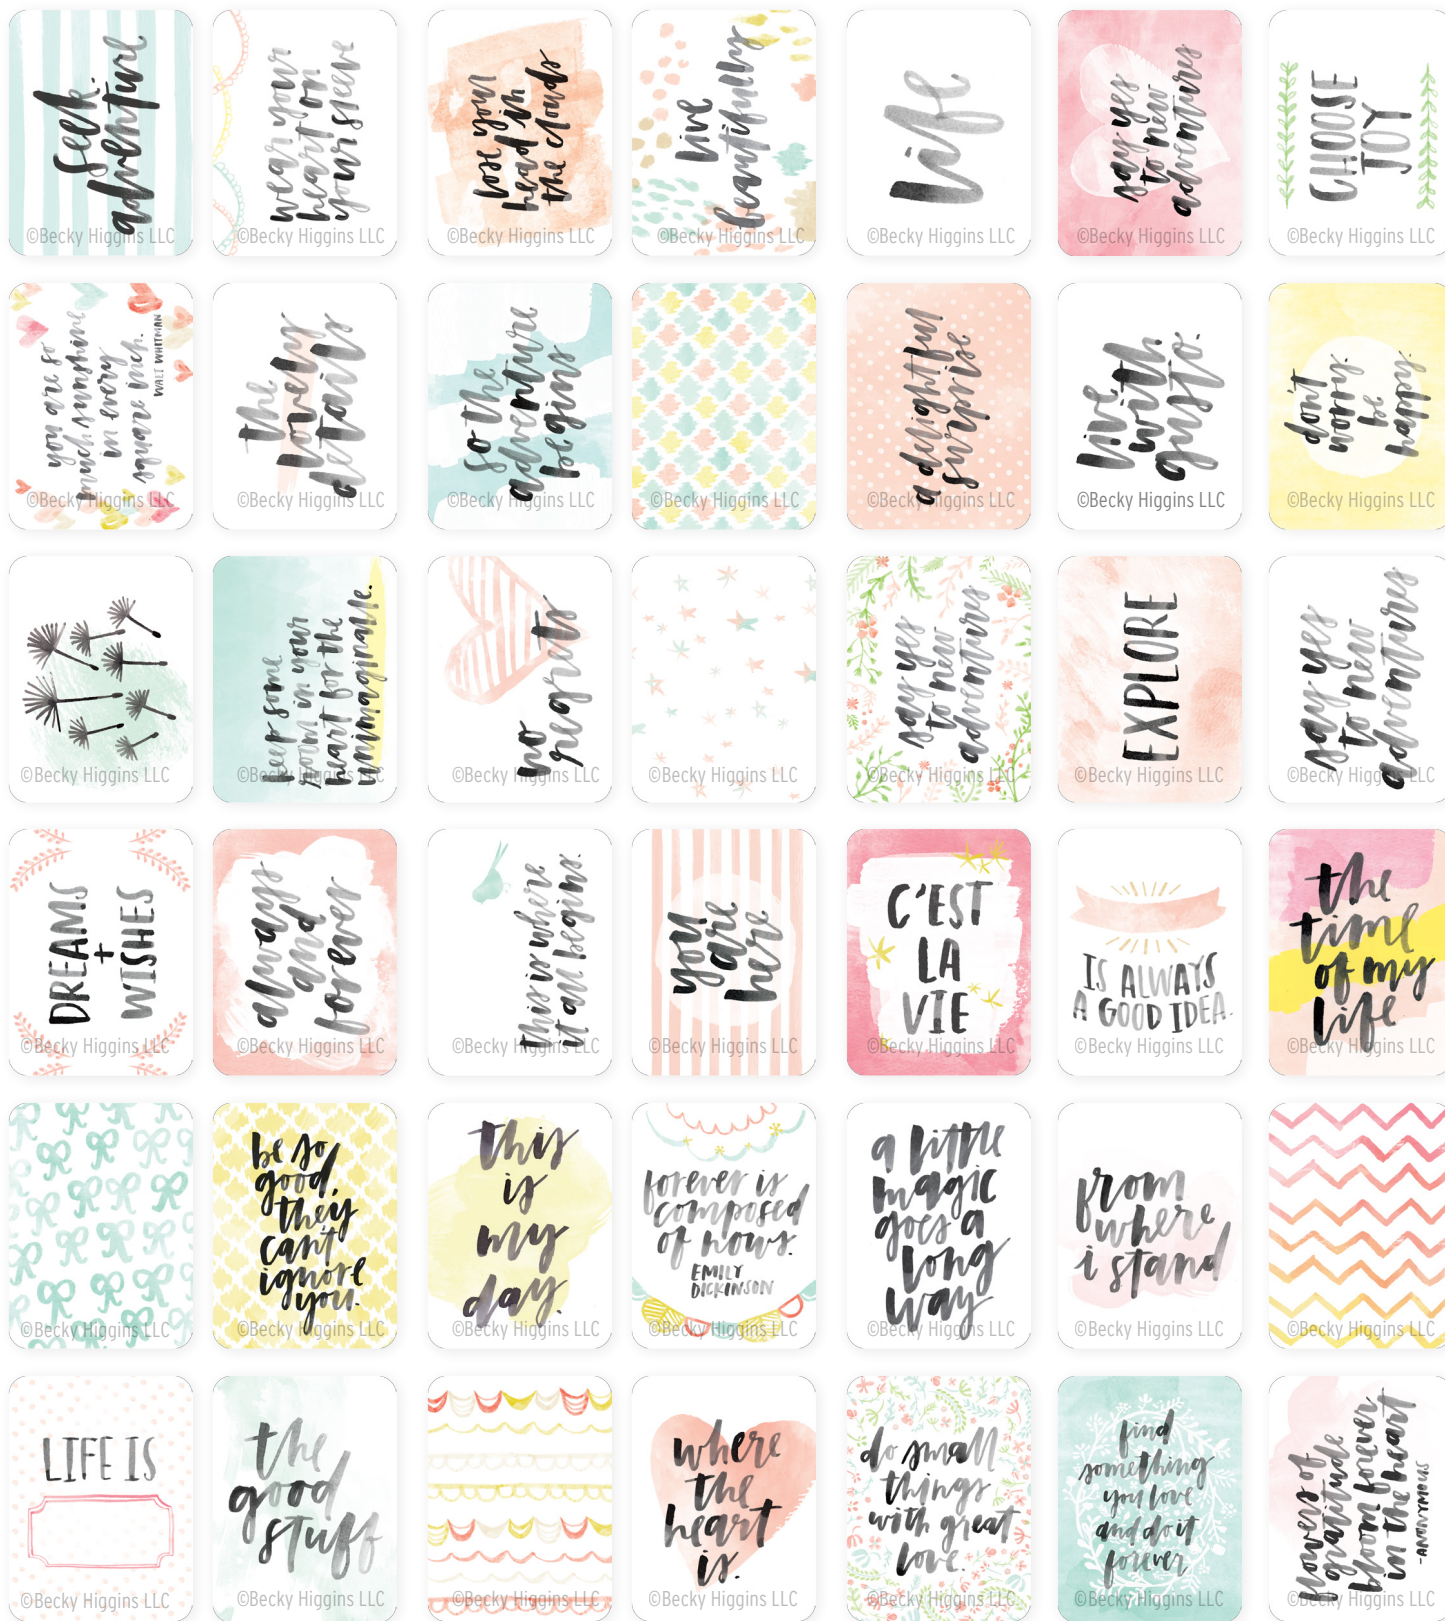 seek
adventure
©Becky Higgins LLC
wear your
heart on
your sleeve
©Becky Higgins LLC
lose your
head in
the clouds
©Becky Higgins LLC
live
beautifully
©Becky Higgins LLC
life
©Becky Higgins LLC
say yes
to new
adventures
©Becky Higgins LLC
CHOOSE
JOY
©Becky Higgins LLC
you are so
much sunshine
in every
square inch.
WALT WHITMAN
©Becky Higgins LLC
the
lovely
details
©Becky Higgins LLC
so the
adventure
begins
©Becky Higgins LLC
©Becky Higgins LLC
a delightful
surprise
©Becky Higgins LLC
live
with
gusto.
©Becky Higgins LLC
don't
worry.
be
happy.
©Becky Higgins LLC
©Becky Higgins LLC
keep some
room in your
heart for the
unimaginable.
©Becky Higgins LLC
no
regrets
©Becky Higgins LLC
©Becky Higgins LLC
say yes
to new
adventures
©Becky Higgins LLC
EXPLORE
©Becky Higgins LLC
say yes
to new
adventures
©Becky Higgins LLC
DREAMS
+
WISHES
©Becky Higgins LLC
always
and
forever
©Becky Higgins LLC
this is where
it all begins.
©Becky Higgins LLC
you
are
here
©Becky Higgins LLC
C'EST
LA
VIE
©Becky Higgins LLC
IS ALWAYS
A GOOD IDEA.
©Becky Higgins LLC
the
time
of my
life
©Becky Higgins LLC
©Becky Higgins LLC
be so
good,
they
can't
ignore
you.
©Becky Higgins LLC
this
is
my
day.
©Becky Higgins LLC
forever is
composed
of nows.
EMILY
DICKINSON
©Becky Higgins LLC
a little
magic
goes a
long
way
©Becky Higgins LLC
from
where
i stand
©Becky Higgins LLC
©Becky Higgins LLC
LIFE IS
©Becky Higgins LLC
the
good
stuff
©Becky Higgins LLC
©Becky Higgins LLC
where
the
heart
is.
©Becky Higgins LLC
do small
things
with great
love.
©Becky Higgins LLC
find
something
you love
and do it
forever
©Becky Higgins LLC
flowers of
gratitude
bloom forever
in the heart
-ANONYMOUS
©Becky Higgins LLC